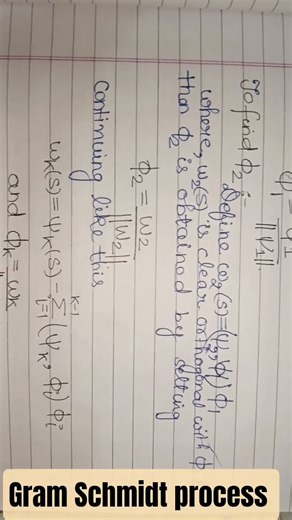 φ₁ = ψ₁ / ||ψ₁||
To find φ₂ :-
Define ω₂(s) = (ψ₂, φ₁) φ₁
where, ω₂(s) is clear orthogonal with φ
then φ₂ is obtained by setting
φ₂ = w₂ / ||w₂||
continuing like this
wₖ(s) = ψₖ(s) - Σᵢ₌₁ᵏ⁻¹ (ψₖ, φᵢ) φᵢ
and φₖ = wₖ
Gram Schmidt process